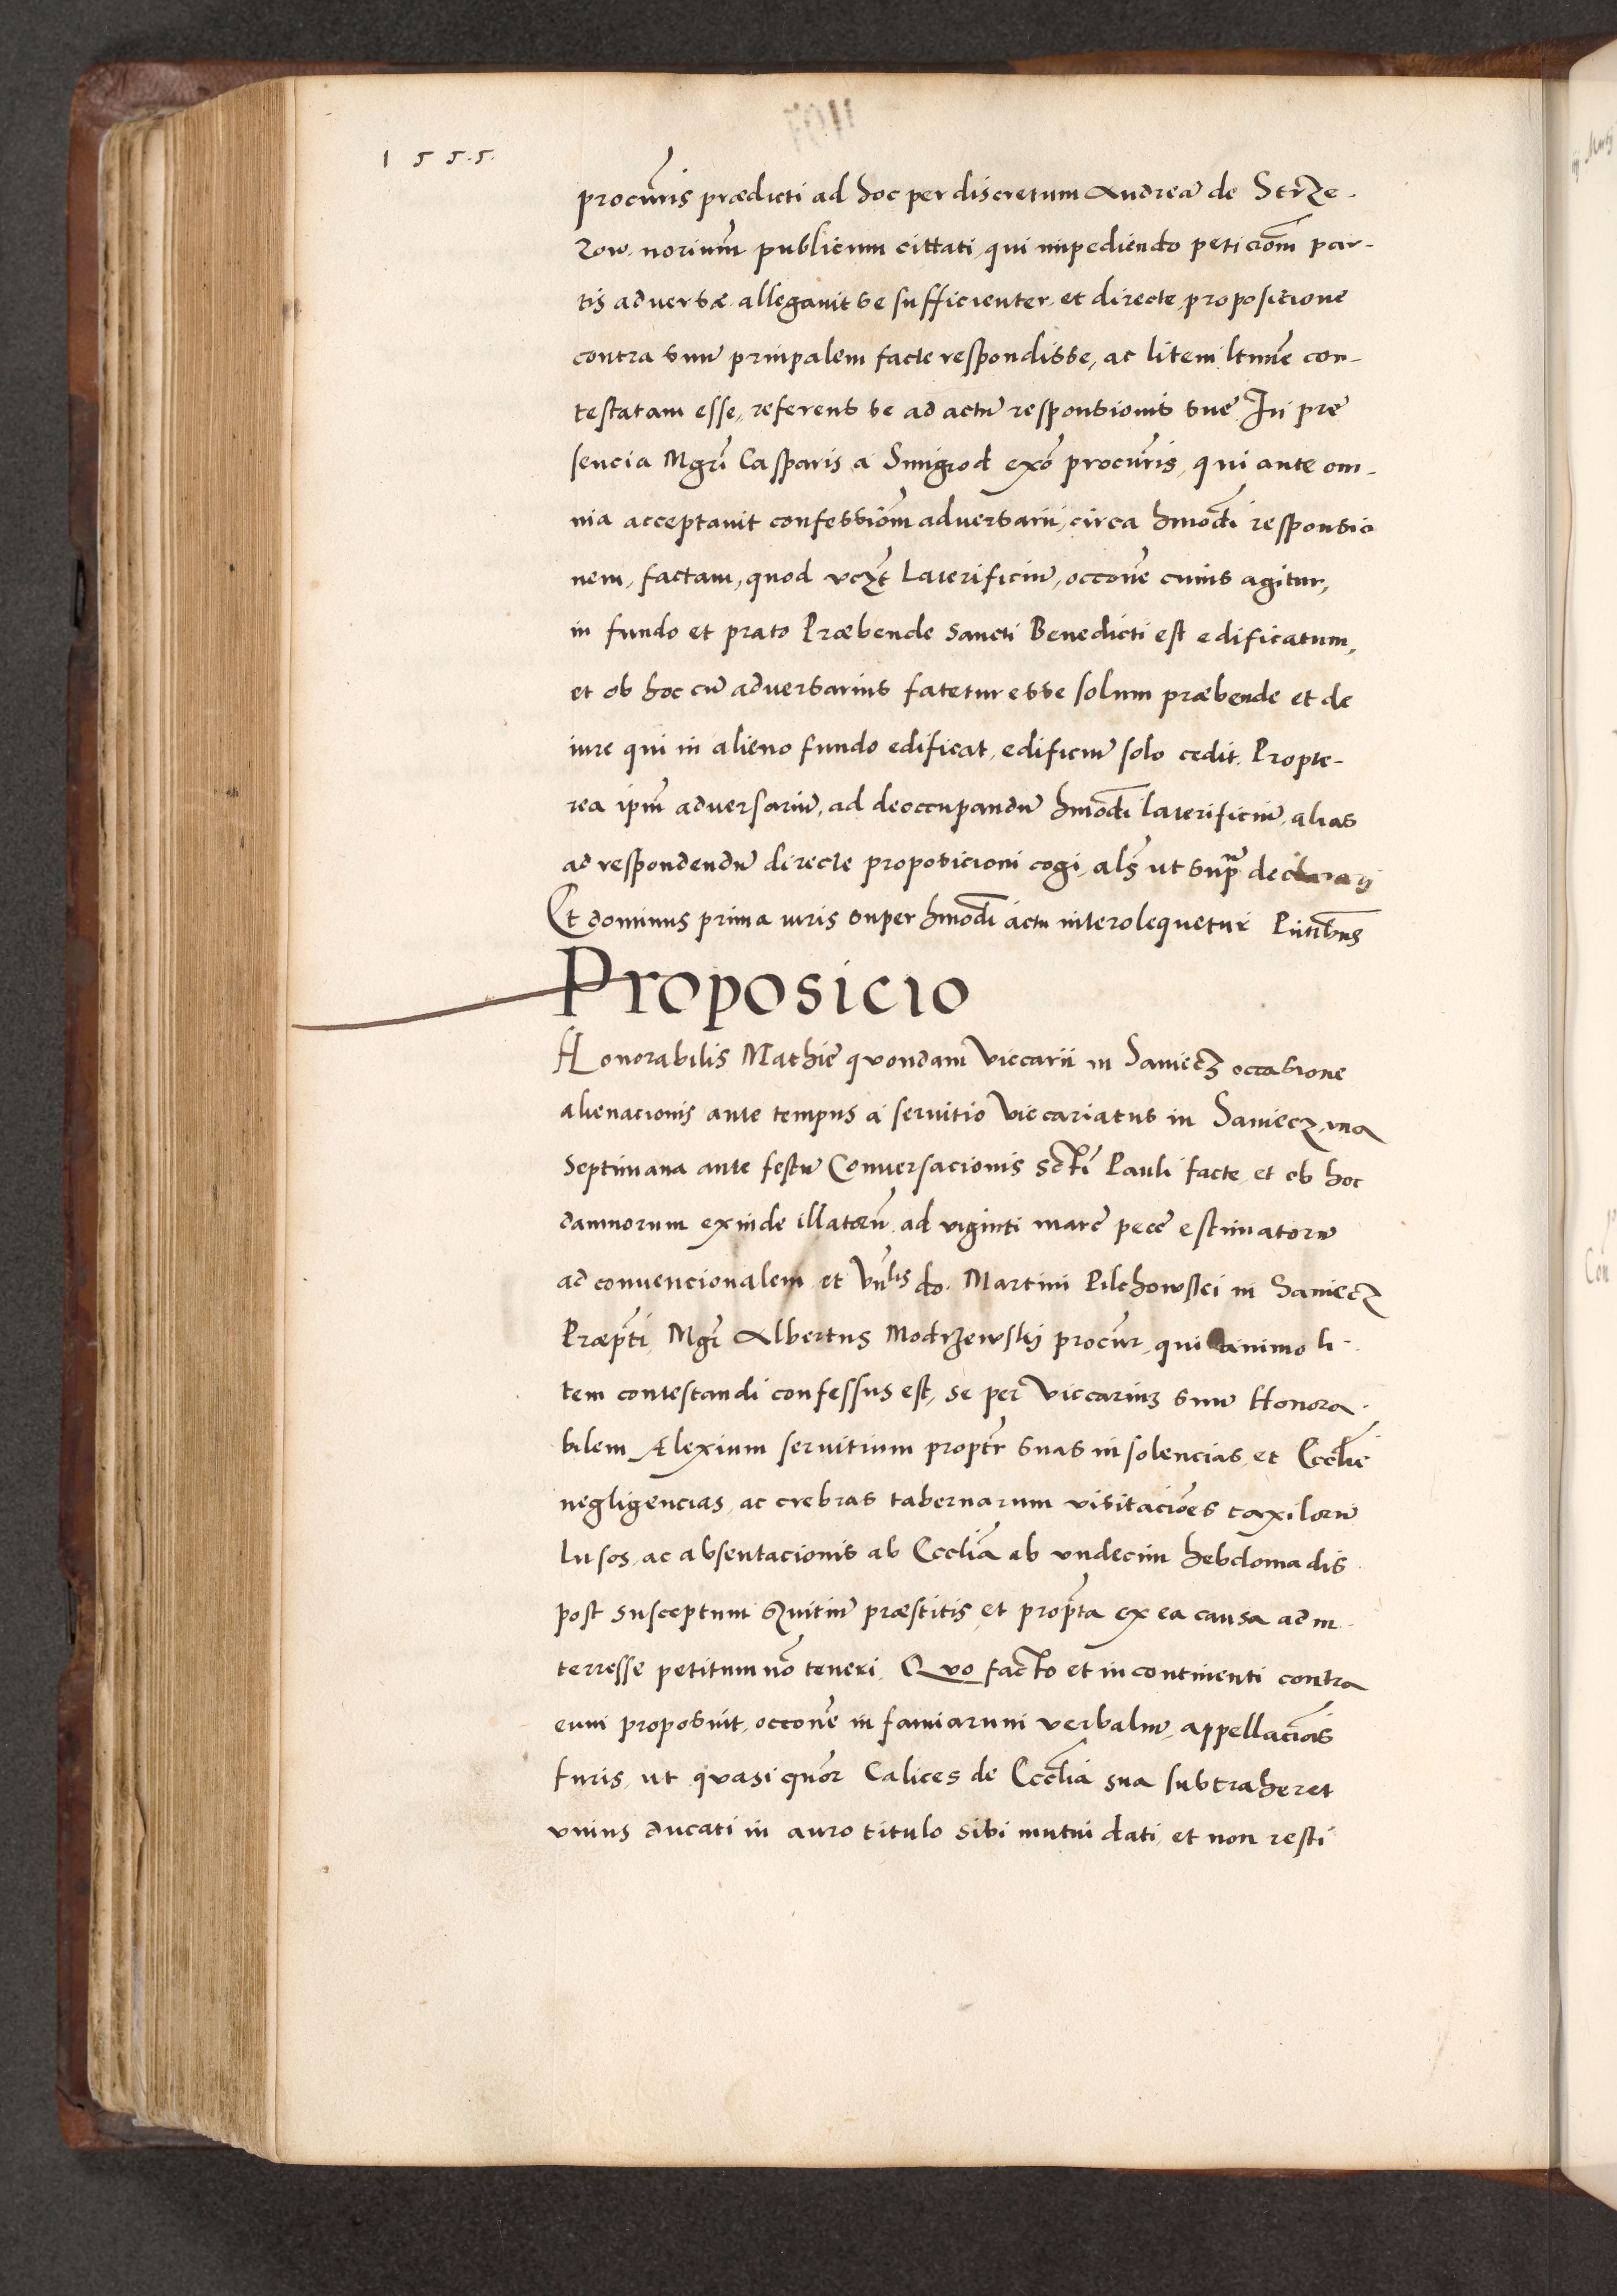 1 5 5.5.
procuris prædicti ad hoc per discretum Andreā de Strze-
zow. noriūm publicum cittati, qui impediendo peticiōm par-
tis adversæ allegavit se sufficienter et directe proposicione
contra suū prinpalem facte respondisse, ac litem ltimē con-
testatam esse, referens se ad actū responsionis sue In pre
sencia Mgrī Casparis a Smigrod exō procuris, qui ante om-
nia acceptavit confessiōm adversarii, circa hmōdi responsio
nem, factam, quod vczt Laterificiū, occōne cuius agitur,
in fundo et prato Præbende sancti Benedicti est edificatum,
et ob hoc cū adversarius fatetur esse solum præbende et de
iure qui in alieno fundo edificat, edificiū solo cedit. Propte-
rea ipm̄ adversariū, ad deoccupandū hmōdi laterificiū, alias
ad respondendū directe proposicioni cogi, als ut supra declarari
Et dominus prima iuris super hmōdi actu interolequetur Pntibus
Proposicio
Honorabilis Mathie quondam Viccarii in Saniecz occasione
alienacionis ante tempus a servitio Viccariatus in Saniecz, una
septimana ante festū Conversacionis sctī Pauli facte, et ob hoc
damnorum exinde illatorū ad viginti marc̄ pecc̄ estimatorū
ad convencionalem et Vnlis do. Martini Pilchowski in Saniecz
Præpti, Mgr̄ Albertus Modrzewskÿ procur̄, qui animo li-
tem contestandi confessus est, se per Viccariū suū Honora-
bilem Alexium servitium proptr̄ suas insolencias, et Ecclīe
negligencias, ac crebras tabernarum visitaciōes taxilorū
lusos, ac absentacionis ab Ecclīa ab undecim hebdomadis
post susceptum servitiū præstitis, et propta ex ea causa ad in
terresse petitum nō teneri. Quo facto et incontinenti contra
eum proposuit, occōne infamiarum verbaliū, appellaciōis
furis, ut quasi quor Calices de Ecclīa sua subtraheret
unius ducati in auro titulo sibi mutui dati, et non resti